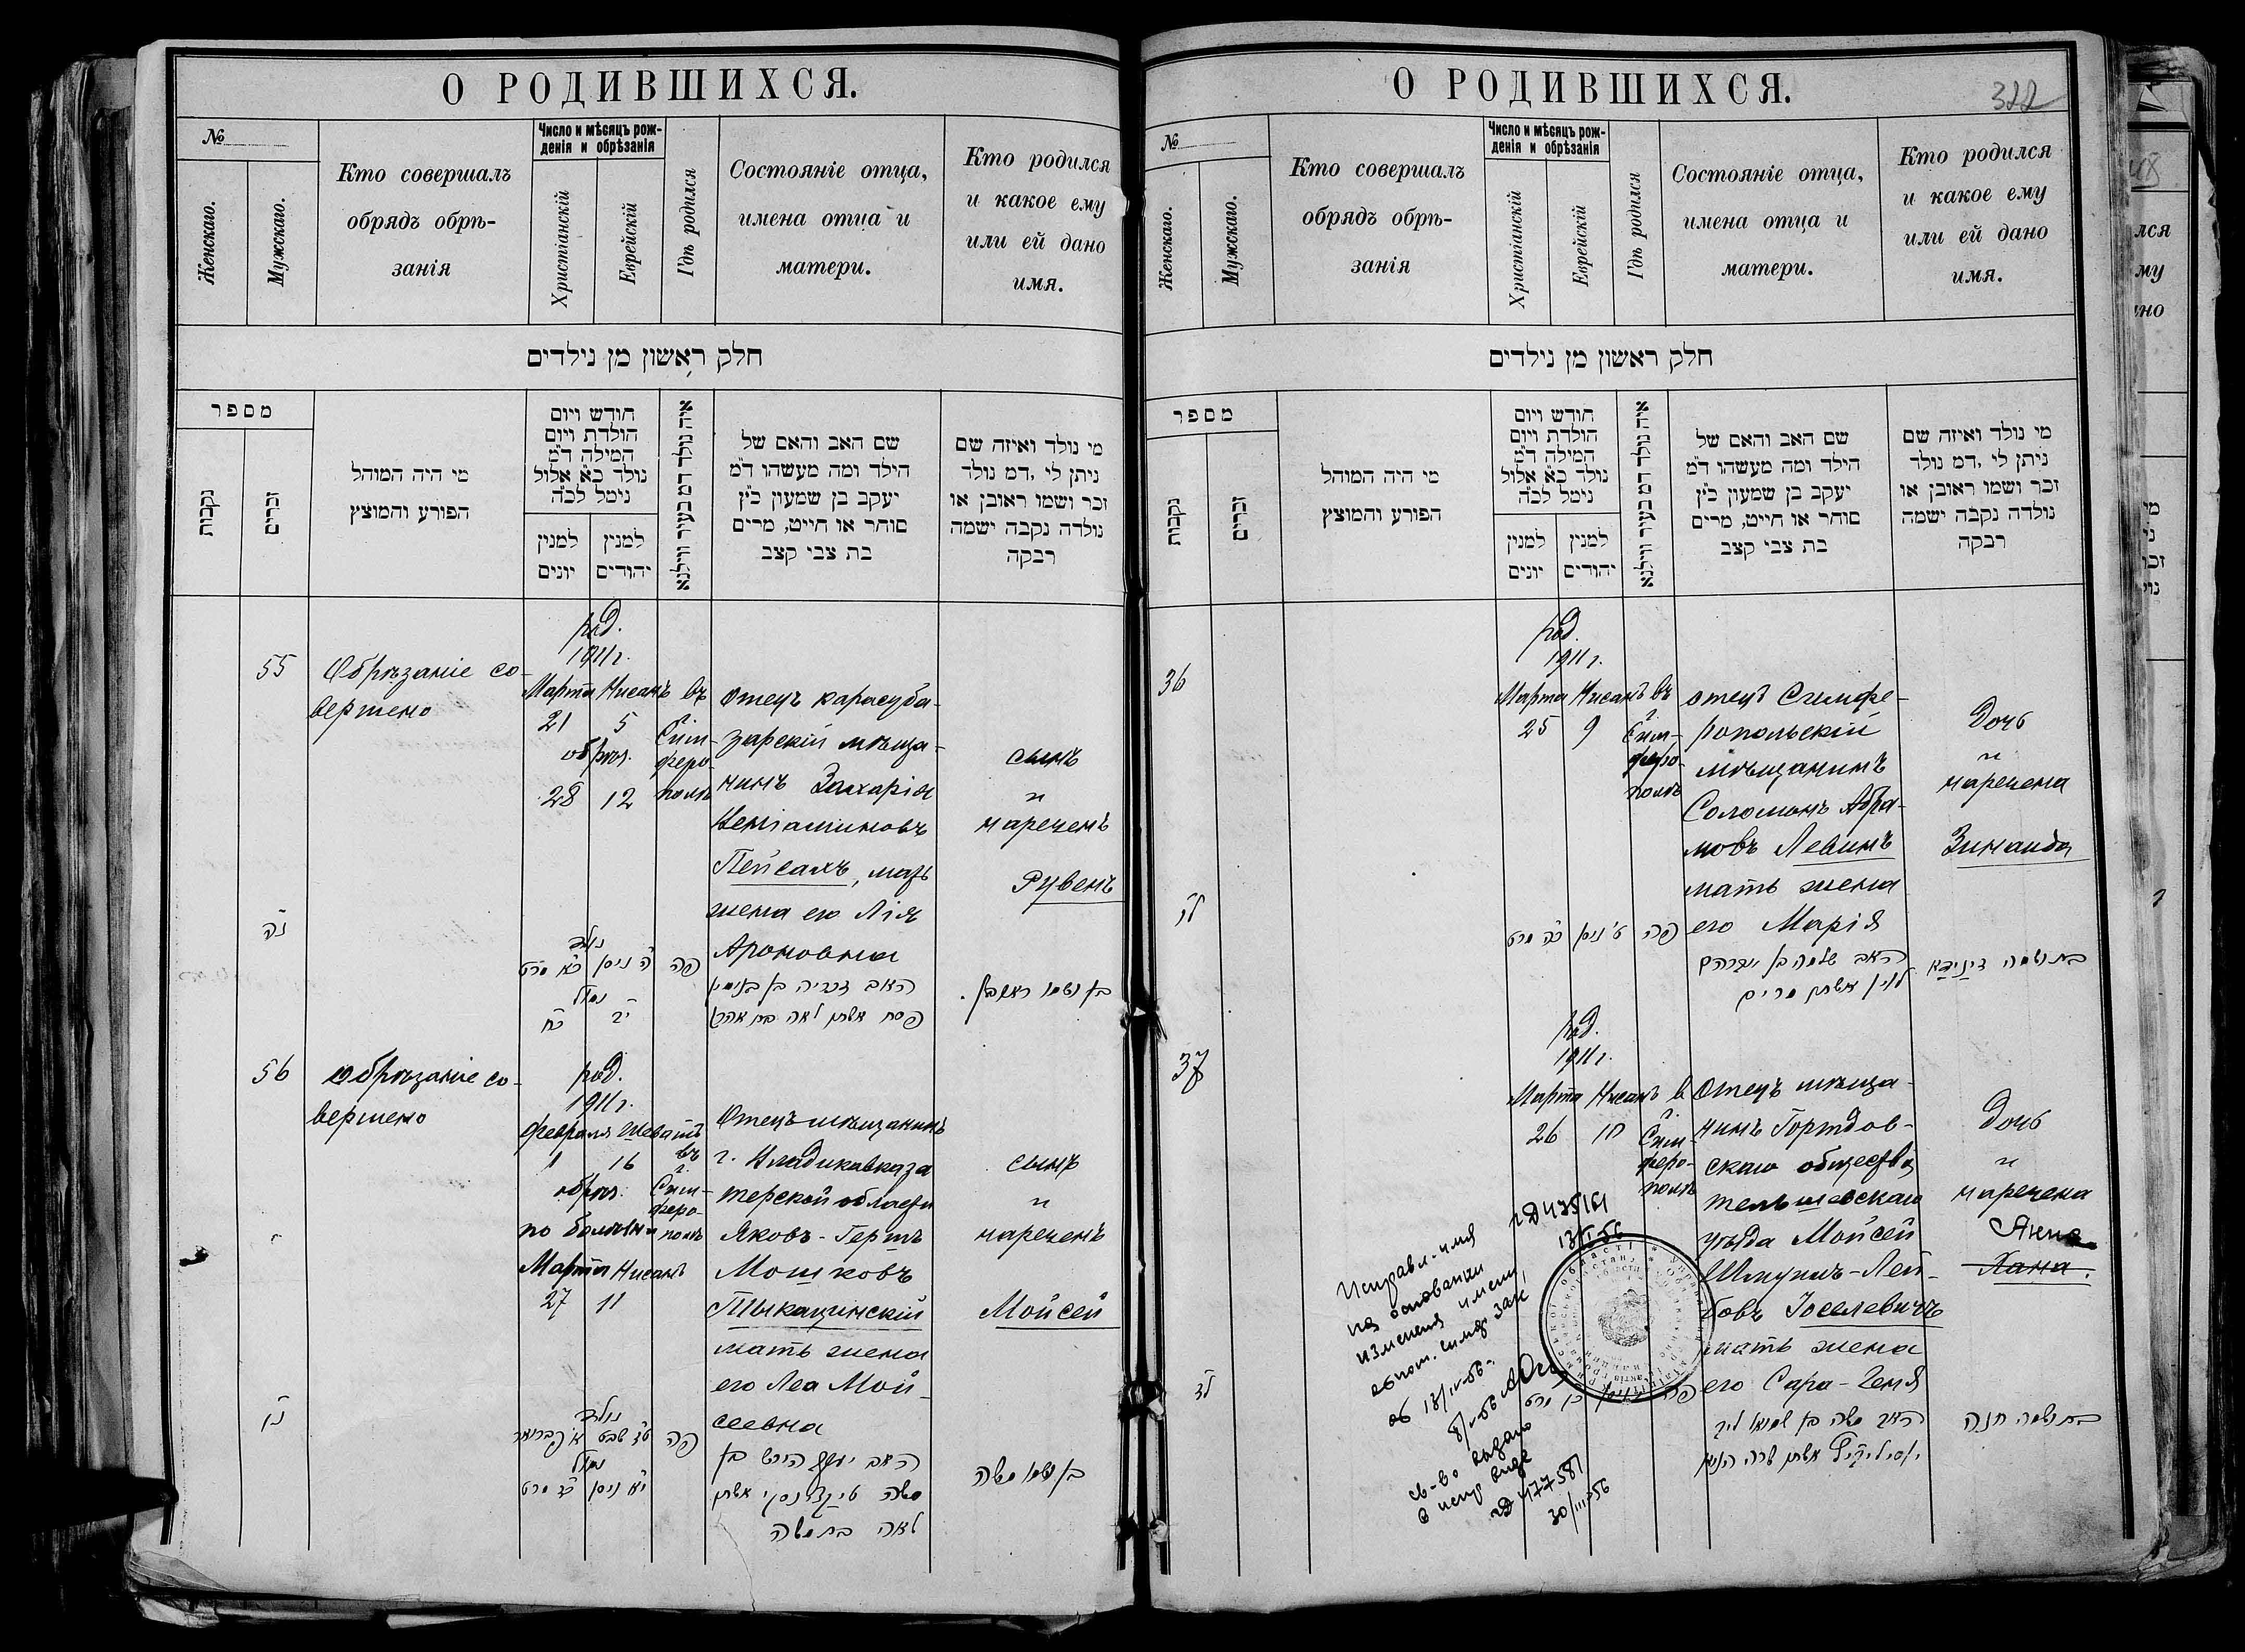 О РОДИВШИХСЯ.
№
Женскаго.
Мужскаго.
Кто совершалъ
обрядъ обрѣ-
занія
Число и мѣсяцъ рож-
денія и обрѣзанія
Христіанскій
Еврейскій
Гдѣ родился
Состояніе отца,
имена отца и
матери.
Кто родился
и какое ему
или ей дано
имя.
חלק ראשון מן נילדים
מספר
נקבות
זכרים
מי היה המוהל
הפורע והמוצץ
חודש ויום
הולדת ויום
המילה ד״מ
נולד כ״א אלול
נימל לכ״ה
למנין
יונים
למנין
יהודים
איה נולד דמ בעיר ווילנא
שם האב והאם של
הילד ומה מעשהו ד״מ
יעקב בן שמעון כ״ץ
סוחר או חייט, מרים
בת צבי קצב
מי נולד ואיזה שם
ניתן לי, דמ נולד
זכר ושמו ראובן או
נולדה נקבה ישמה
רבקה
55
Обрѣзаніе со-
вершено
род.
1911 г.
Марта Нисанъ
21 5
обрѣз.
28 12
въ
г.
Сим-
феро-
полѣ
Отецъ карасуба-
зарскій мѣща-
нинъ Захарія
Веніаминовъ
Пейсахъ, мать
жена его Лія
Ароновна
сынъ
и
нареченъ
Рувенъ
נה
נולד
כ״א מרט
ה׳ ניסן
נמול
כח
יב
פה
האב זכריה בן בנימין
פסח אשתו לאה בת אהרן
בן ושמו ראובן.
56
Обрѣзаніе со-
вершено
род.
1911 г.
Февраля Шеватъ
1 16
обрѣз.
по болѣзни
Марта Нисанъ
27 11
въ
г.
Сим-
феро-
полѣ
Отецъ мѣщанинъ
г. Владикавказа
терской области
Яковъ-Гершъ
Мошковъ
Тыкацинскій
мать жена
его Леа Мой-
сеевна
сынъ
и
нареченъ
Мойсей
נו
נולד
א׳ פברואר
ט״ז שבט
נמול
י״א ניסן
פה
האב יעקב הירש בן
משה טיקצינסקי אשתו
לאה בת משה
בן ושמו משה
О РОДИВШИХСЯ.
322
№
Женскаго.
Мужскаго.
Кто совершалъ
обрядъ обрѣ-
занія
Число и мѣсяцъ рож-
денія и обрѣзанія
Христіанскій
Еврейскій
Гдѣ родился
Состояніе отца,
имена отца и
матери.
Кто родился
и какое ему
или ей дано
имя.
חלק ראשון מן נילדים
מספר
נקבות
זכרים
מי היה המוהל
הפורע והמוצץ
חודש ויום
הולדת ויום
המילה ד״מ
נולד כ״א אלול
נימל לכ״ה
למנין
יונים
למנין
יהודים
איה נולד דמ בעיר ווילנא
שם האב והאם של
הילד ומה מעשהו ד״מ
יעקב בן שמעון כ״ץ
סוחר או חייט, מרים
בת צבי קצב
מי נולד ואיזה שם
ניתן לי, דמ נולד
זכר ושמו ראובן או
נולדה נקבה ישמה
רבקה
36
род.
1911 г.
Марта Нисанъ
25 9
въ
г.
Сим-
феро-
полѣ
отецъ Симфе-
ропольскій
мѣщанинъ
Соломонъ Абра-
мовъ Левинъ
мать жена
его Марія
Дочь
и
наречена
Зинаида
לו
כה מרט
ט׳ ניסן
פה
האב שלמה בן אברהם
לוין אשתו מרים
בת ושמה זינידא
37
род.
1911 г.
Марта Нисанъ
26 10
в
г.
Сим-
феро-
полѣ
Отецъ мѣща-
нинъ Гортдов-
скаго общества
тельшевскаго
уѣзда Мойсей
Шмуилъ-Лей-
бовъ Іоселевичъ
мать жена
его Сара-Геня
Дочь
и
наречена
Анна
Хана.
לז
פה
האב משה בן שמואל ליב
יאסילעוויץ אשתו שרה העניא
בת ושמה חנה
Исправл. имя
на основании
изменения имени
13/I-56
8/V-56
св-во выдано
в испр. виде
30/III-56